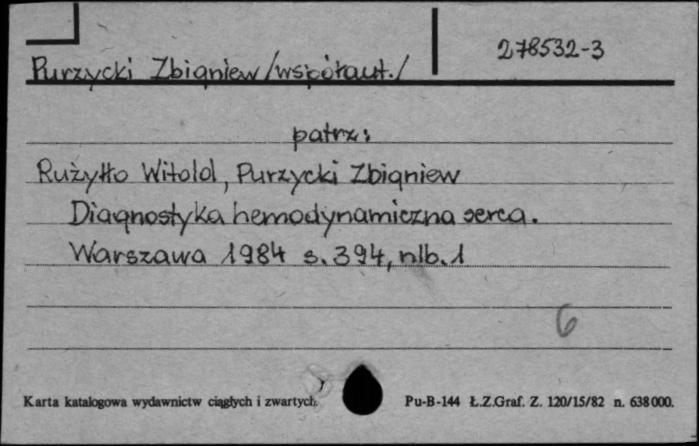 278532-3
Purzycki Zbigniew /współaut./
patrz:
Rużyłło Witold, Purzycki Zbigniew
Diagnostyka hemodynamiczna serca.
Warszawa 1984 s. 394, nlb. 1
6
Karta katalogowa wydawnictw ciągłych i zwartych.
Pu-B-144 Ł.Z.Graf. Z. 120/15/82 n. 638000.